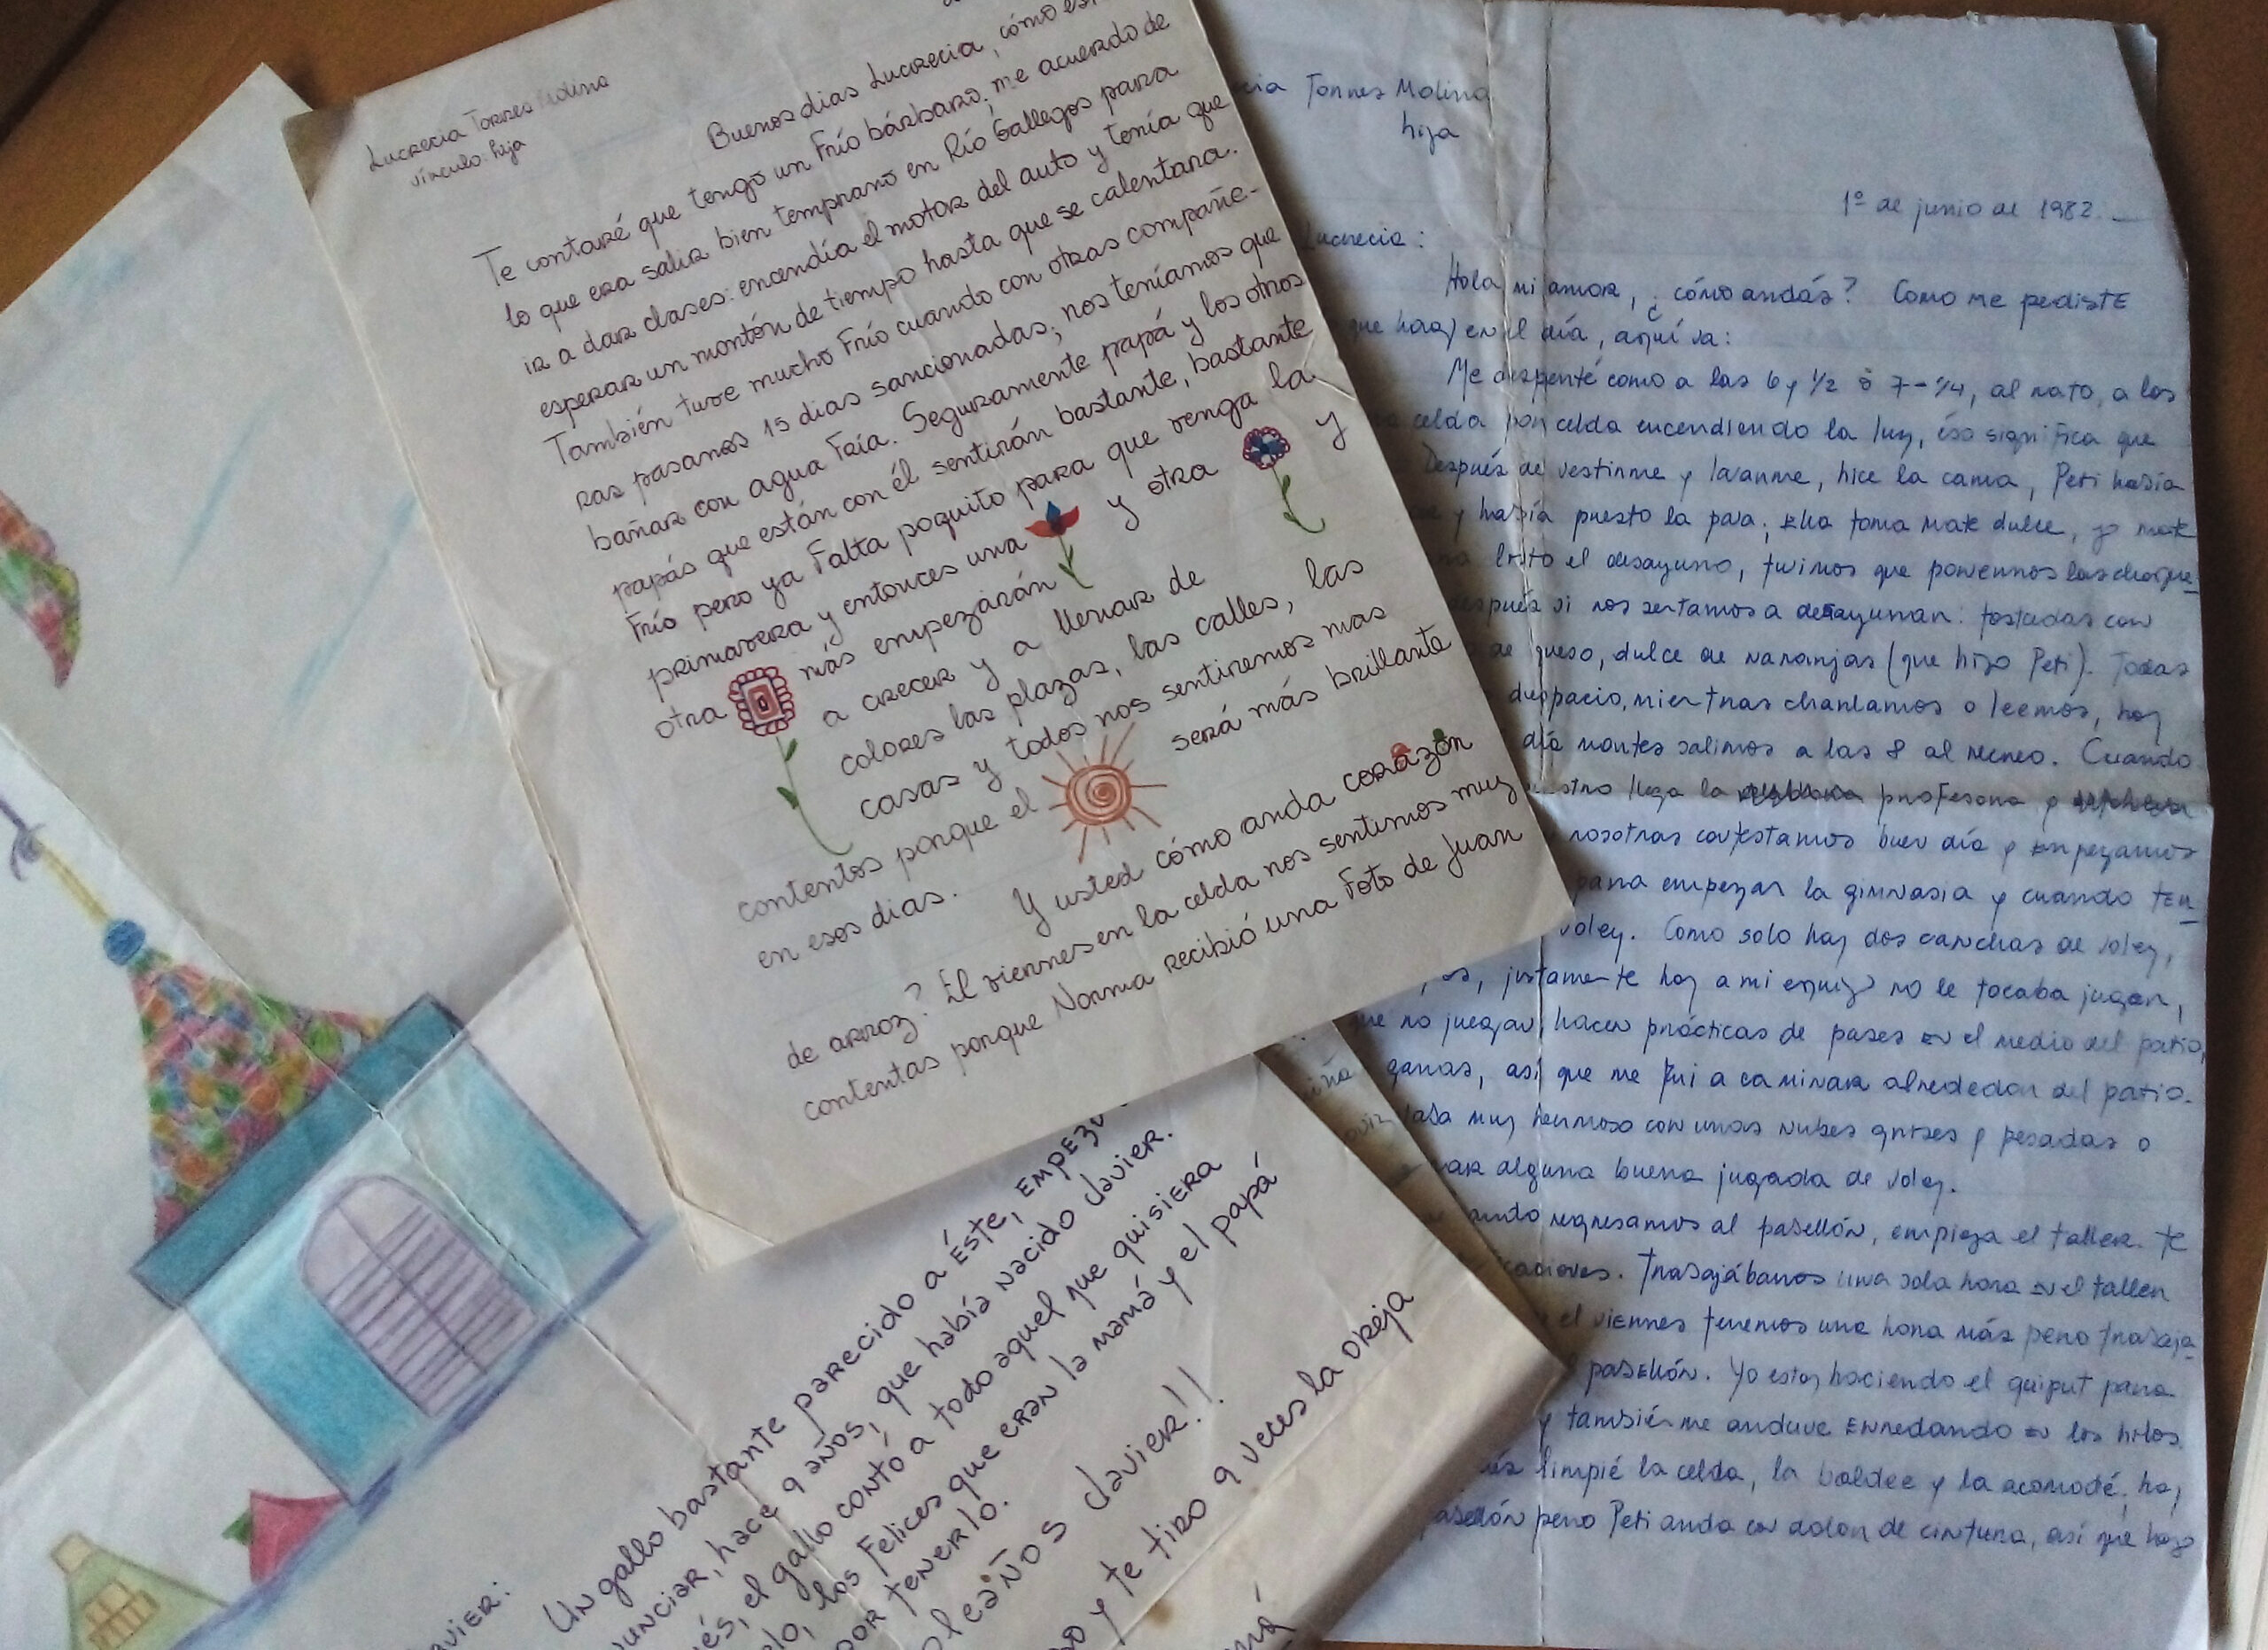 Lucrecia Torres Molina
vínculo: hija
Buenos dias Lucrecia, cómo
Te contaré que tengo un frío bárbaro; me acuerdo de
lo que era salir bien temprano en Río Gallegos para
ir a dar clases: encendía el motor del auto y tenía que
esperar un montón de tiempo hasta que se calentara.
También tuve mucho frío cuando con otras compañe-
ras pasamos 15 dias sancionadas; nos teníamos que
bañar con agua fría. Seguramente papá y los otros
papás que están con él sentirán bastante, bastante
frío pero ya falta poquito para que venga la
primavera y entonces una y otra y
otra más empezarán
a crecer y a llenar de
colores las plazas, las calles, las
casas y todos nos sentiremos mas
contentos porque el será más brillante
en esos dias.
Y usted cómo anda corazón
de arroz? El viernes en la celda nos sentimos muy
contentas porque Norma recibió una foto de Juan
Torres Molina
hija
1º de junio de 1982.
Lucrecia:
Hola mi amor, ¿cómo andás? Como me pediste
que hago en el día, aquí va:
Me desperté como a las 6 y 1/2 ó 7-1/4, al rato, a las
celda por celda encendiendo la luz, éso significa que
Después de vestirme y lavarme, hice la cama, Peti había
y había puesto la pava; ella toma mate dulce, yo mate
listo el desayuno, tuvimos que ponernos las chaque-
después si nos sentamos a desayunar: tostadas con
de queso, dulce de naranjas (que hizo Peti). Todas
despacio, mientras charlamos o leemos, hoy
día martes salimos a las 8 al recreo. Cuando
llega la profesora y
nosotras contestamos buen día y empezamos
para empezar la gimnasia y cuando ter-
voley. Como solo hay dos canchas de voley,
justamente hoy a mi equipo no le tocaba jugar,
que no juegan hacen prácticas de pases en el medio del patio,
ganas, así que me fui a caminar alrededor del patio.
muy hermoso con unas nubes grises y pesadas o
alguna buena jugada de voley.
regresamos al pabellón, empieza el taller. te
Trabajábamos una sola hora en el taller
el viernes tenemos una hora más pero trabaja-
pabellón. Yo estoy haciendo el quiput para
y también me anduve enredando en los hilos.
limpié la celda, la baldee y la acomodé, hoy
pabellón pero Peti anda con dolor de cintura, así que hago
Un gallo bastante parecido a éste, empezó
hace 9 años, que había nacido Javier.
el gallo contó a todo aquel que quisiera
los felices que eran la mamá y el papá
por tenerlo.
Javier!!
y te tiro a veces la oreja